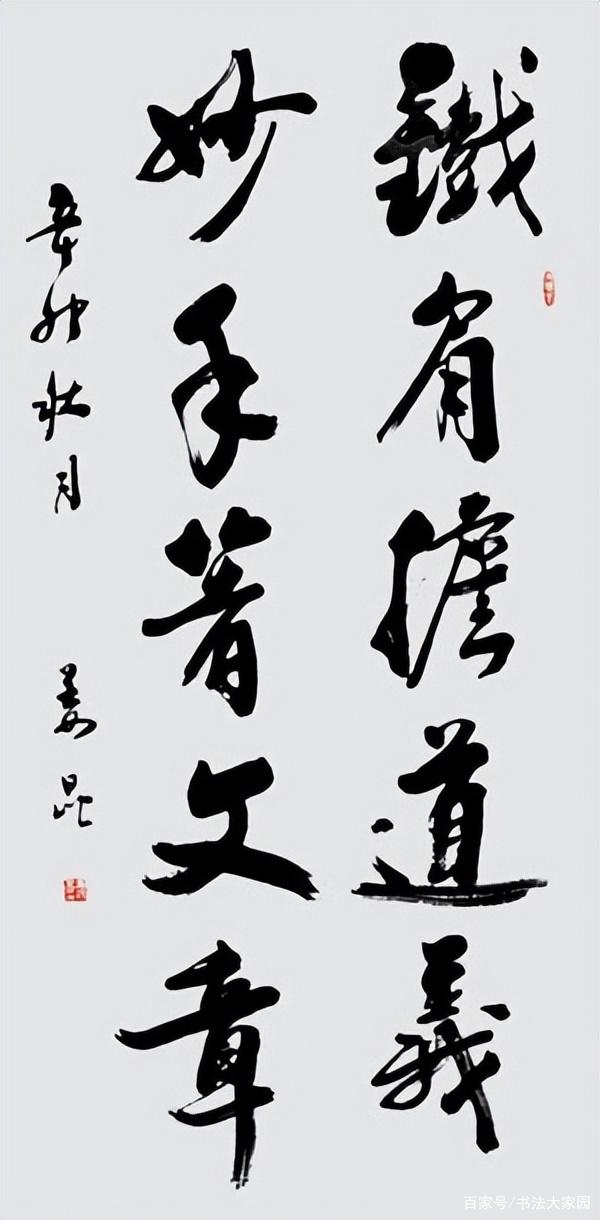 鐵肩擔道義
妙手著文章
辛卯秋月
姜昆
百家号/书法大家园